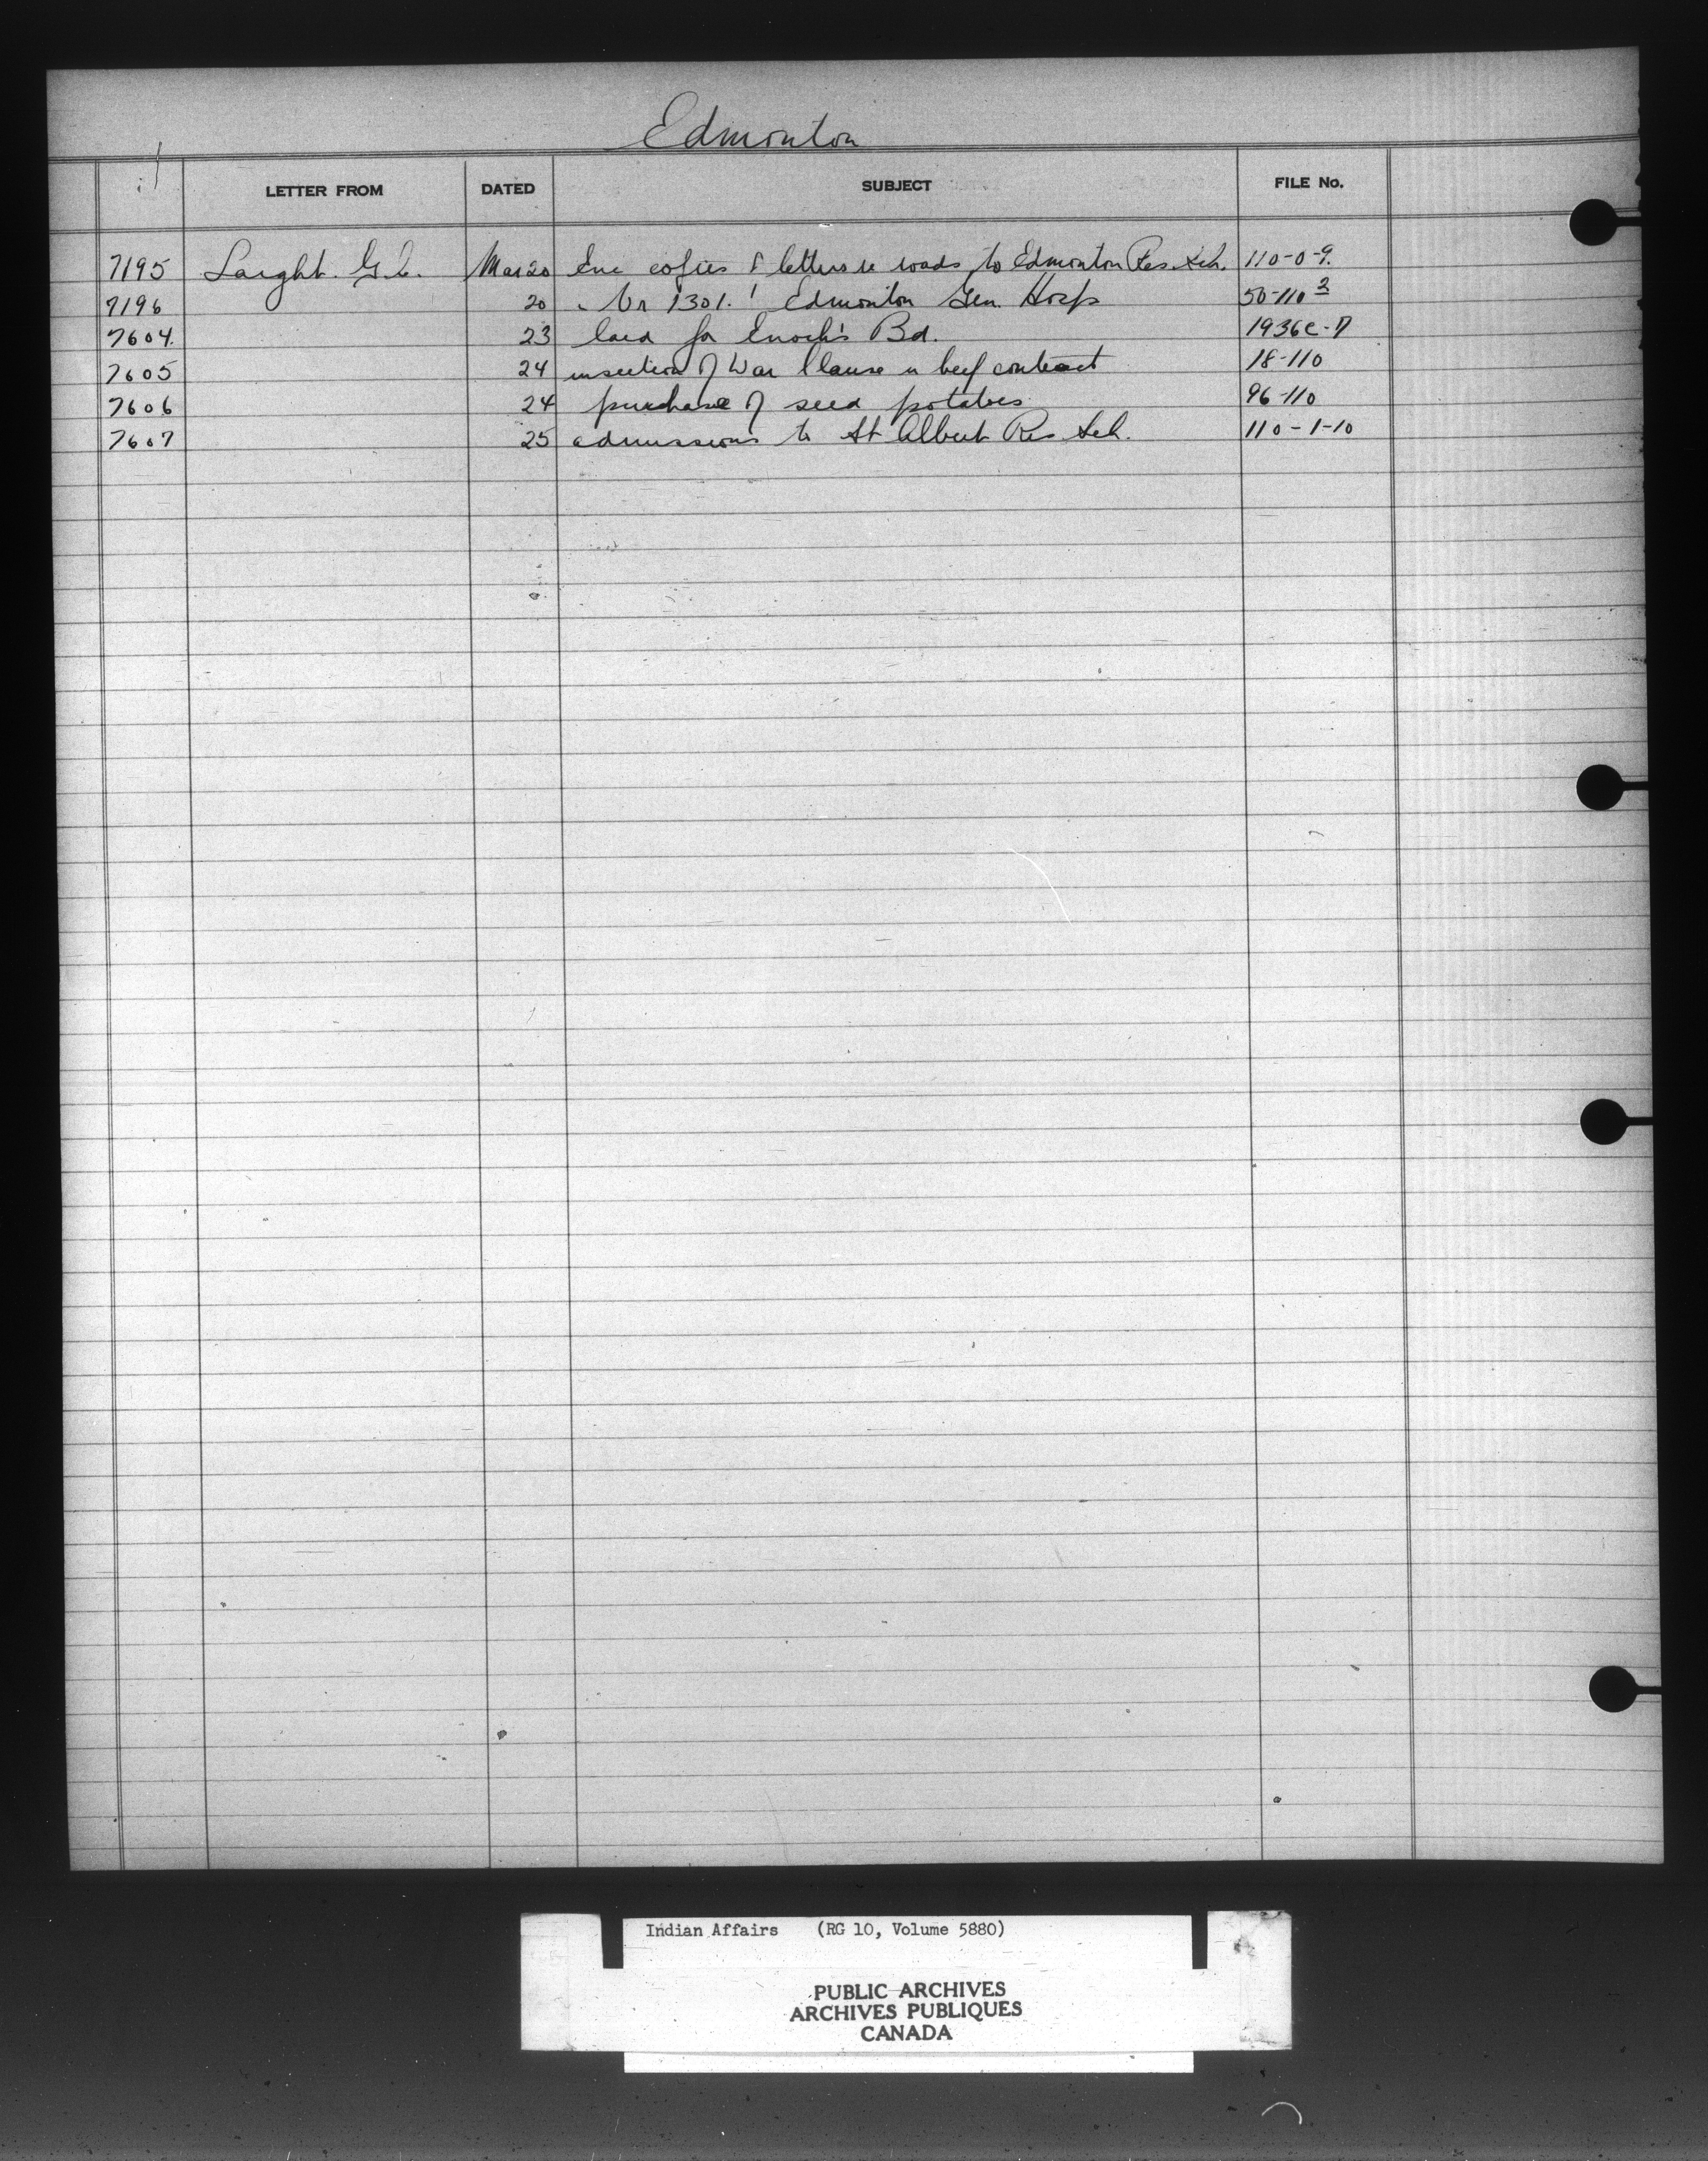 Edmonton
LETTER FROM DATED SUBJECT FILE No.
7195 Laight. G.C. Mar 20 Enc copies of letters re roads to Edmonton Res. Sch. 110-0-9.
7196 20 " Vr 1301. Edmonton Gen. Hosp 50-110 2
7604. 23 for Enoch's Bd. 1936e-7
7605 24 insertion of War Clause in beef contract 18-110
7606 24 purchase of seed potatoes 96-110
7607 25 admissions to St Albert Res Sch. 110-1-10
Indian Affairs (RG 10, Volume 5880)
PUBLIC ARCHIVES
ARCHIVES PUBLIQUES
CANADA